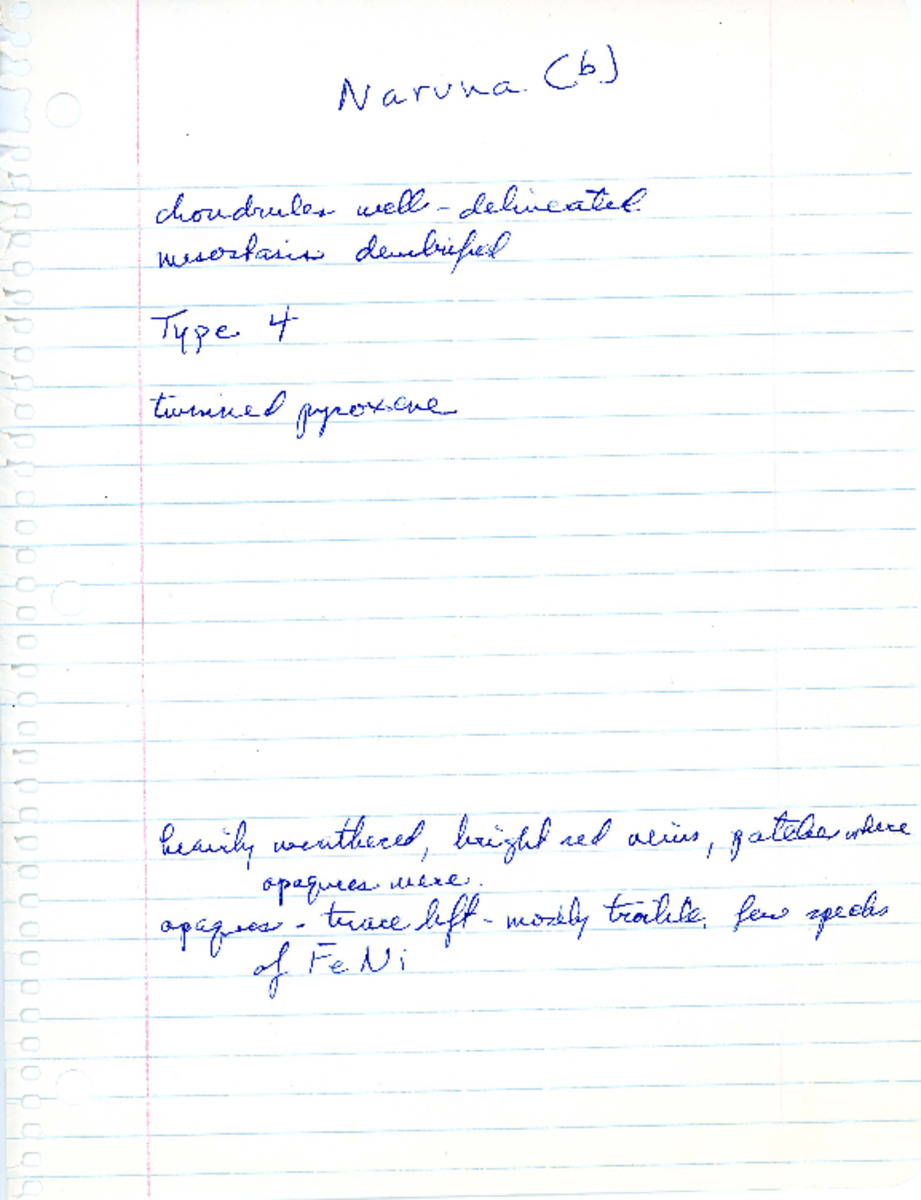 Naruna (b)
chondrules well-delineated
mesostasis devitrified
Type 4
twinned pyroxene
heavily weathered, bright red veins, patches where
opaques were.
opaques - trace left - mostly troilite, few specks
of FeNi